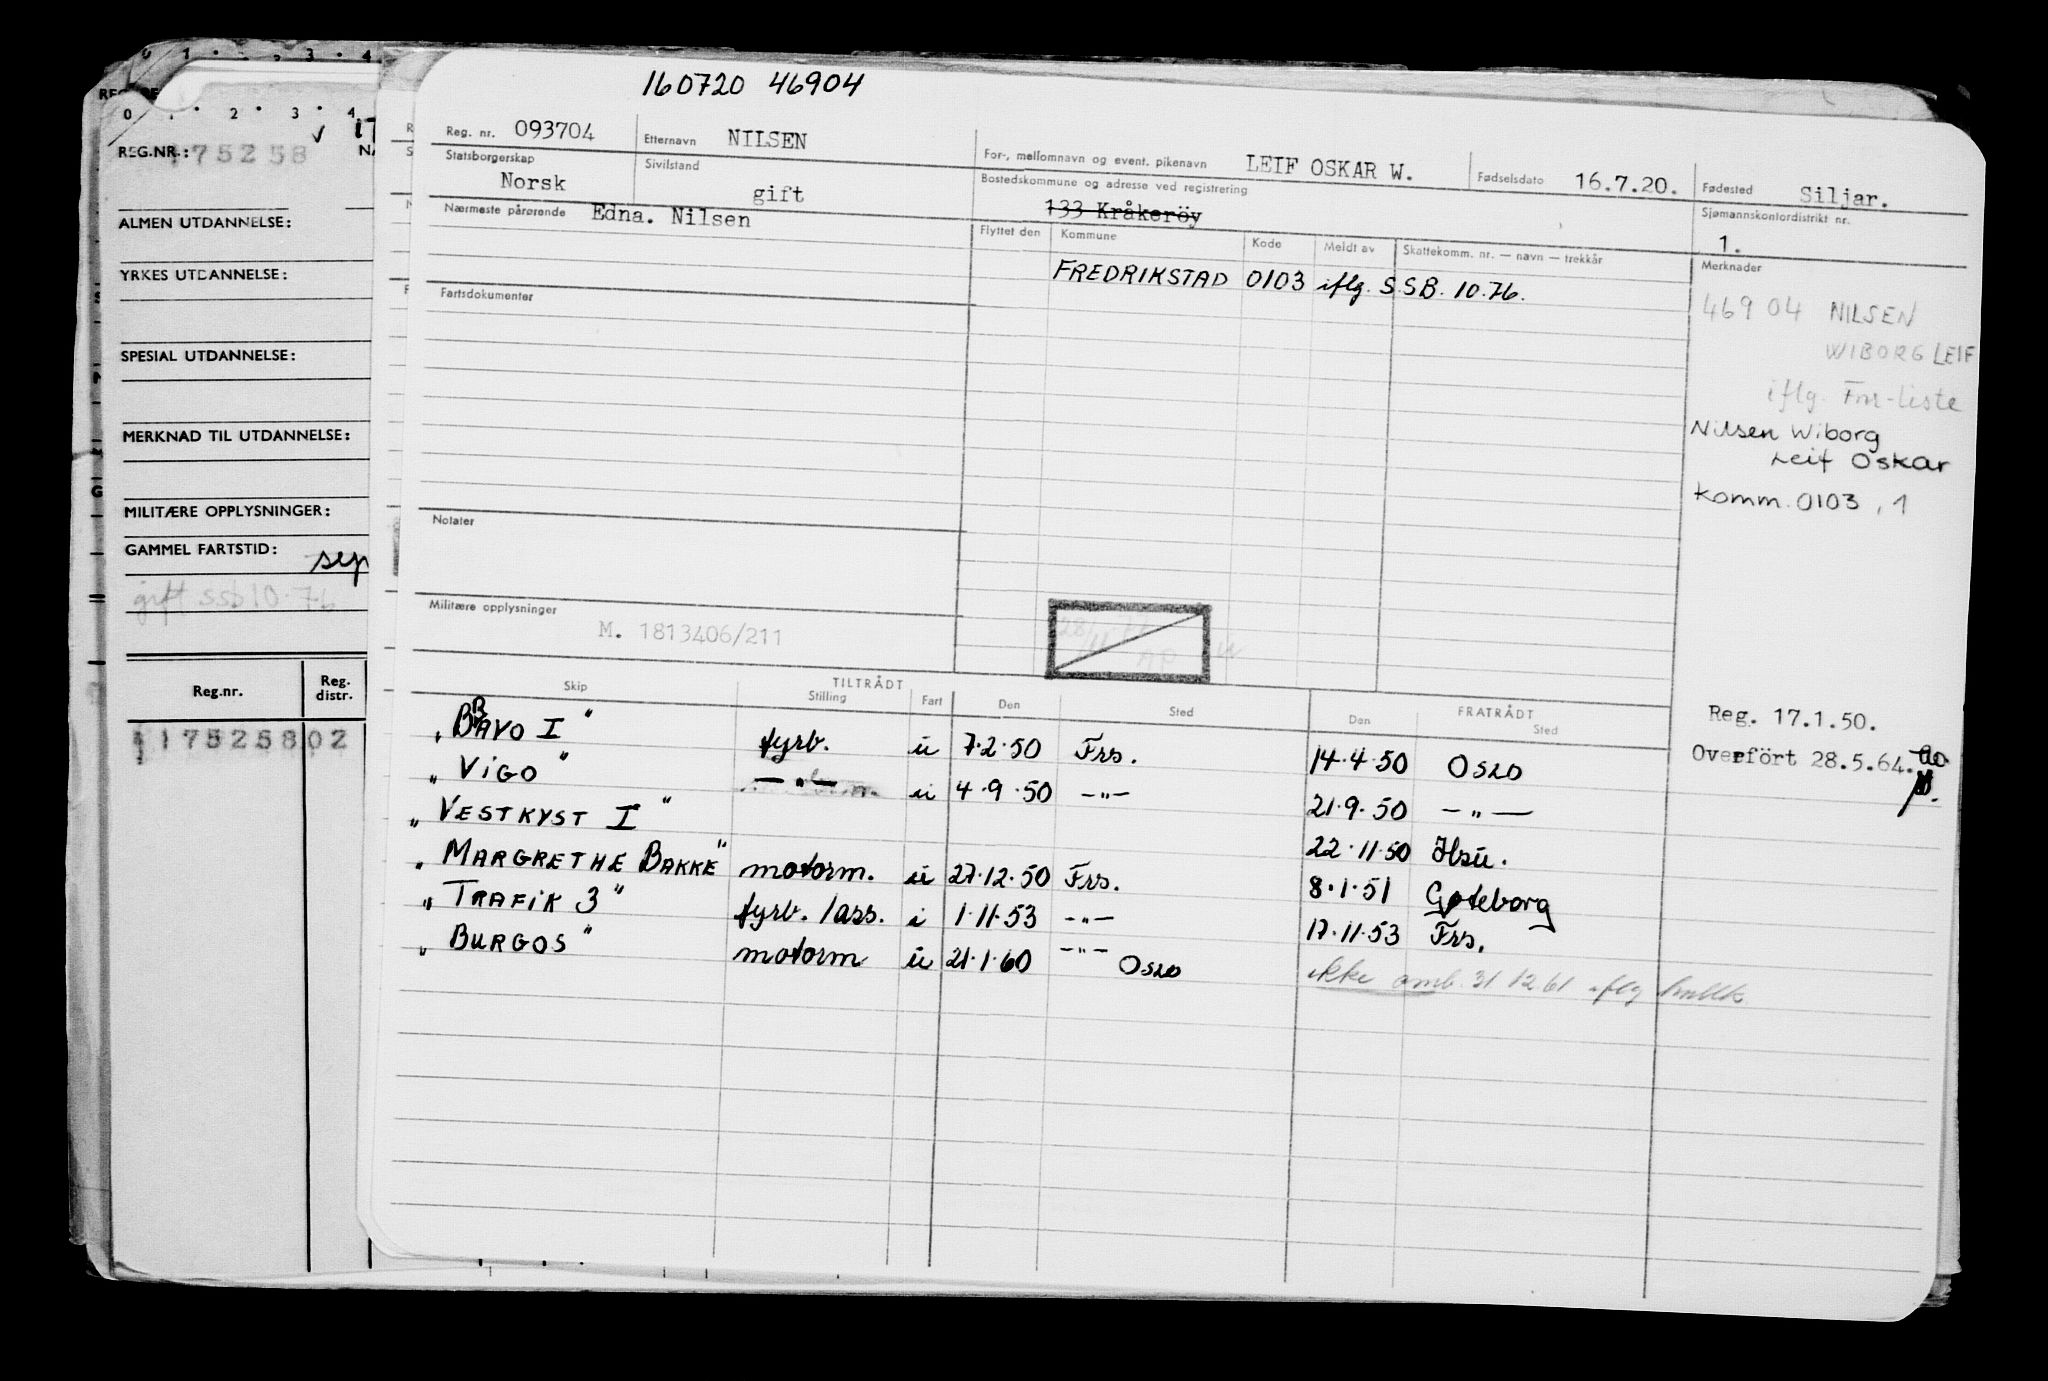 160720 46904
Reg. nr. 093704 Etternavn NILSEN For-, mellomnavn og event. pikenavn LEIF OSKAR W. Fødselsdato 16.7.20. Fødested Siljar.
Statsborgerskap Norsk Sivilstand gift Bostedskommune og adresse ved registrering 133 Kråkeröy Sjømannskontordistrikt nr. 1.
Nærmeste pårørende Edna. Nilsen Flyttet den Kommune Kode Meldt av Skattekomm. nr. — navn — trekkår Merknader
FREDRIKSTAD 0103 iflg. SSB. 10.76.
Fartsdokumenter
46904 NILSEN
WIBORG LEIF
iflg. Fnr-liste
Nilsen Wiborg
Leif Oskar
Komm. 0103, 1
Notater
Militære opplysninger M. 1813406/211
Skip TILTRÅDT Stilling Fart Den Sted FRATRÅDT Den Sted
Reg. 17.1.50.
Overfört 28.5.64.
"BAVO I" fyrb. u 7.2.50 Frs. 14.4.50 Oslo
"VIGO" —"— u 4.9.50 —"— 21.9.50 —"—
"VESTKYST I" 22.11.50
"MARGRETHE BAKKE" motorm. u 27.12.50 Frs. 8.1.51 Gøteborg
"TRAFIK 3" fyrb./ass. i 1.11.53 —"— 17.11.53 Frs.
"BURGOS" motorm u 21.1.60 —"— Oslo ikke omb. 31 12 61 iflg
0 1 . 3 . 4
0 . 2 . 3 . 4
REG.NR.: 175258
ALMEN UTDANNELSE:
YRKES UTDANNELSE:
SPESIAL UTDANNELSE:
MERKNAD TIL UTDANNELSE:
MILITÆRE OPPLYSNINGER:
GAMMEL FARTSTID:
gift ssb 10.76
Reg.nr. Reg. distr.
175258 02